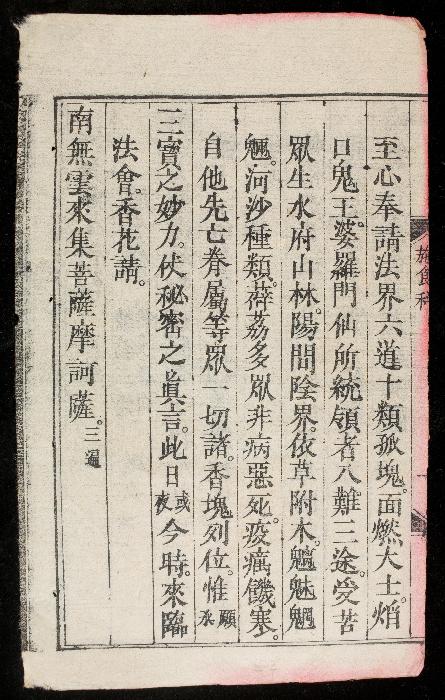 至心奉請法界六道十類孤塊。面燃大士焰
口鬼王。婆羅門仙所統領者八難三途。受苦
眾生水府山林。陽間陰界。依草附木。魑魅魍
魎。河沙種類。薜荔多眾非。病惡死。疫癘饑寒。
自他先亡眷屬等眾一切諸。香塊列位。惟願承
三寶之妙力。仗秘密之眞言。此日或夜今時。來臨
法會。香花請。
南無雲來集菩薩摩訶薩。三遍
施食科